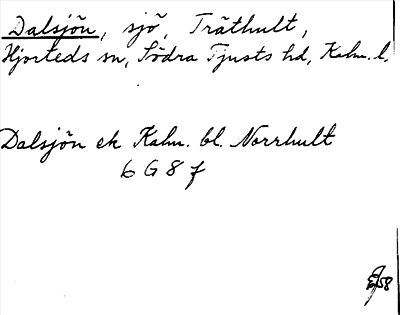 Dalsjön, sjö, Träthult,
Hjorteds sn, Södra Tjusts hd, Kalm. l.
Dalsjön ek Kalm. bl. Norrhult
6 G 8 f
58